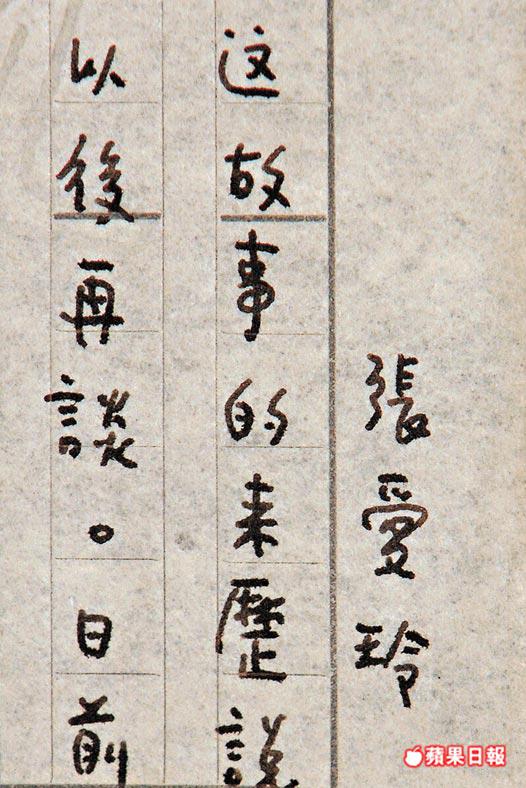 張愛玲
这故事的来歷説
以後再談。日前
蘋果日報